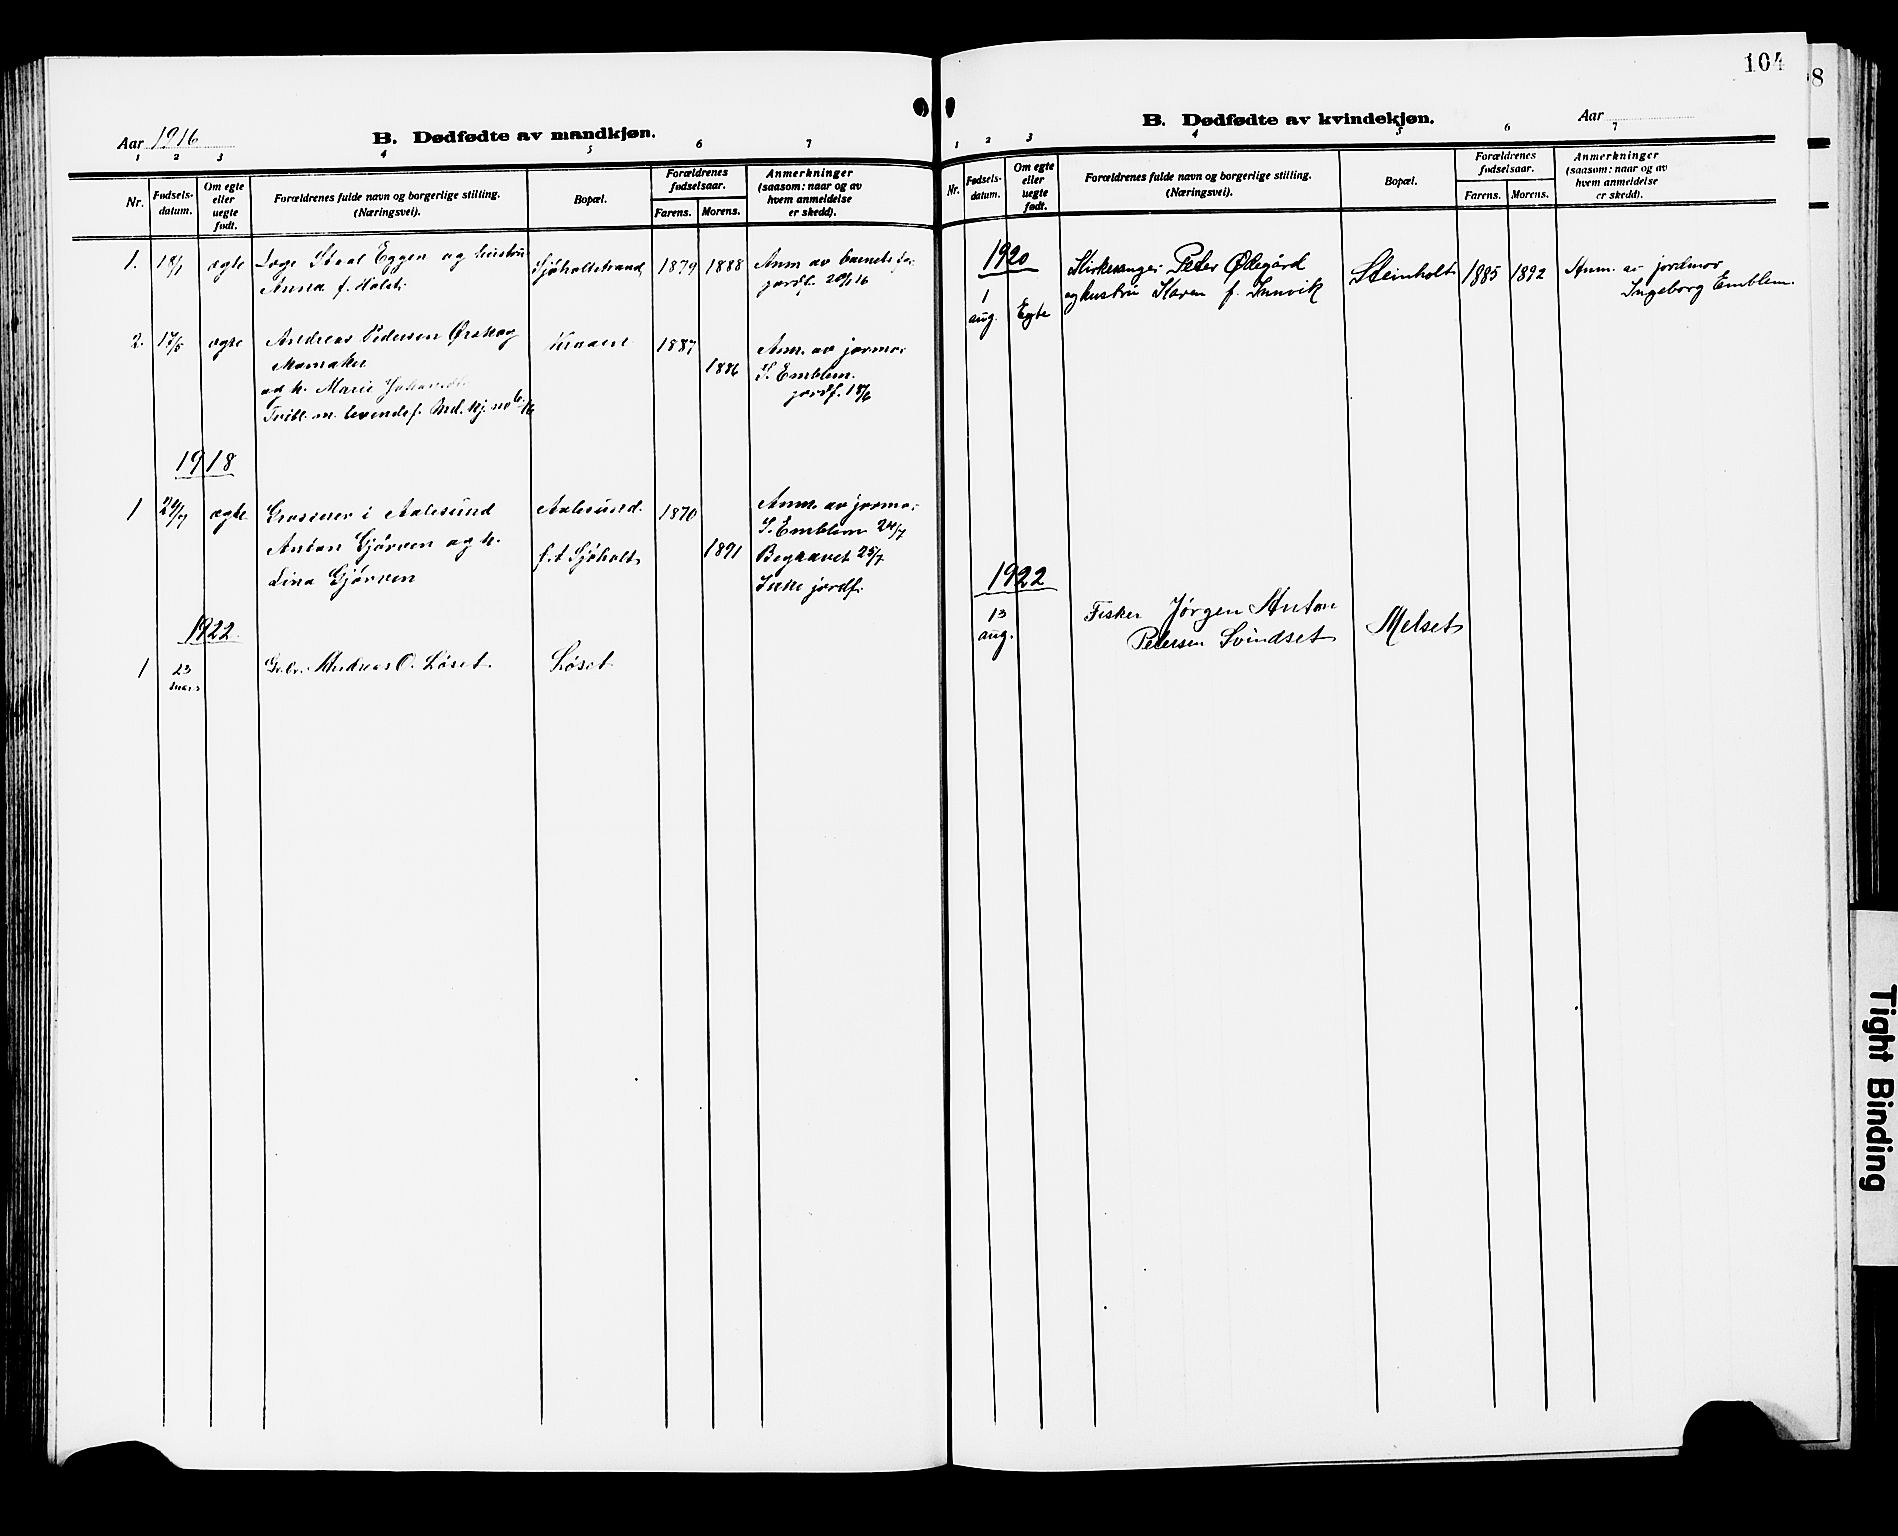 Aar 1916
B. Dødfødte av mandkjøn.
1 2 3 4 5 6 7
Nr.
Fødsels-
datum.
Om egte
eller
uegte
født.
Forældrenes fulde navn og borgerlige stilling.
(Næringsvei).
Bopæl.
Forældrenes
fødselsaar.
Farens. Morens.
Anmerkninger
(saasom: naar og av
hvem anmeldelse
er skedd).
1. 18/1 ægte Eggen og hustru Sjøholtstrand 1879 1888 Anm av barnets far
Anna f. Holst jordf. 20/1 16
2. ægte Andreas Pedersen Ørskog 1887 Anm. av jormor
1886 S. Emblem.
og h. Marie jordf. 18/6
Tvill. m. levendef.
1918
1 24/7 ægte i Aalesund Aalesund. 1870 Anm. av jormor
S. Emblem 24/7
Anton Gjørven og h. f.t Sjøholt 1891 Begravet 25/7
Lina Gjørven Ikke jordf.
1922.
1 23 Andreas O. Løset. Løset
mars
104
8
B. Dødfødte av kvindekjøn.
Aar
1 2 3 4 5 6 7
Nr.
Fødsels-
datum.
Om egte
eller
uegte
født.
Forældrenes fulde navn og borgerlige stilling.
(Næringsvei).
Bopæl.
Forældrenes
fødselsaar.
Farens. Morens.
Anmerkninger
(saasom: naar og av
hvem anmeldelse
er skedd).
1920
Kirkesanger Peter Ødegård Steinholt 1885 1892 Anm. av jordmor
1 og hustru Karen f. Innvik Ingeborg Emblem.
aug. Egte
1922
13 Fisker Jørgen Anton Melset
aug. Petersen Svindset
Tight Binding